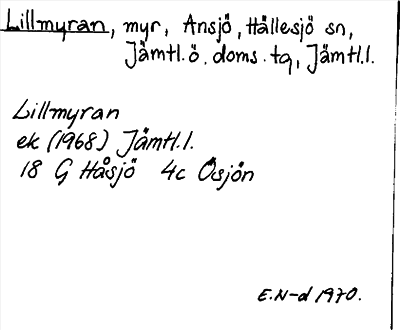 Lillmyran, myr, Ansjö, Hållesjö sn,
Jämtl.ö. doms. tg, Jämtl.l.
Lillmyran
ek (1968) Jämtl.l.
18 G Håsjö 4c Ösjön
E.N-d 1970.